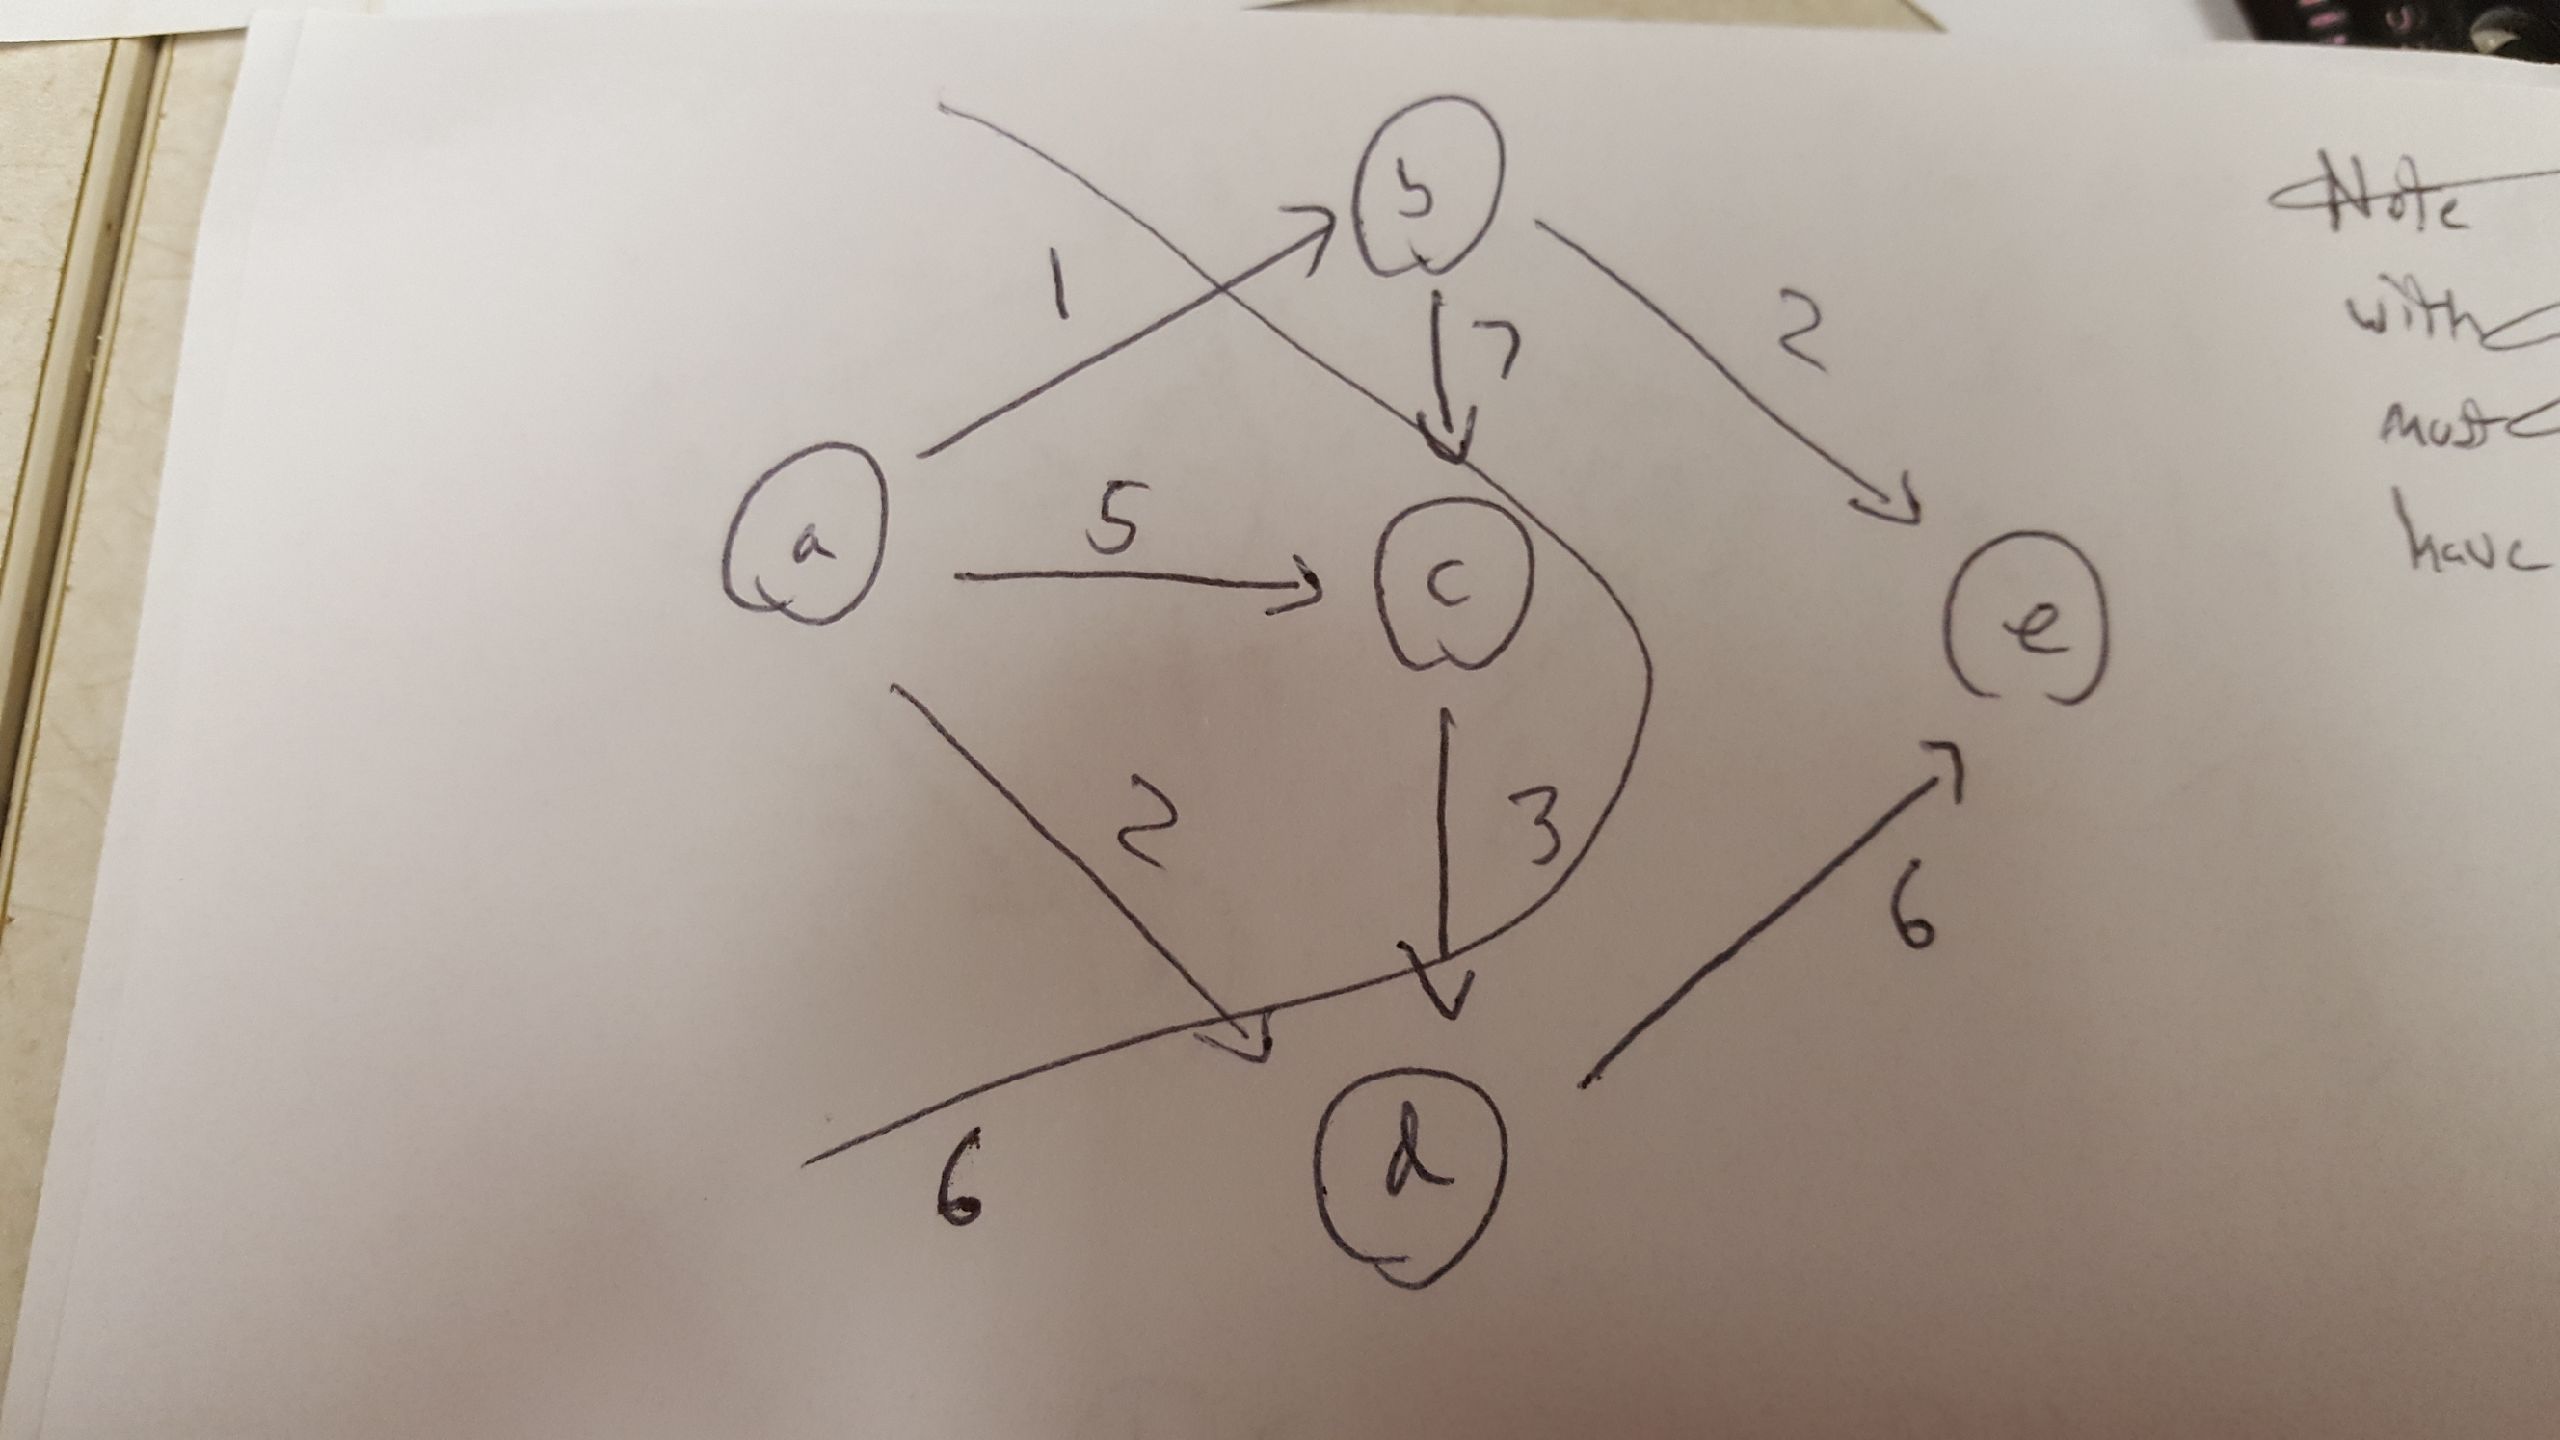 b
1
7
2
a
5
c
e
2
3
6
d
6
Note
with
must
have